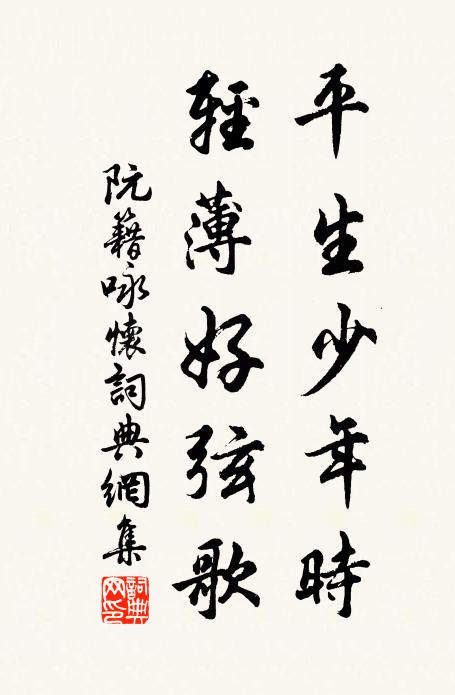 平生少年時
輕薄好弦歌
阮籍咏懷詞典網集
詞典网印